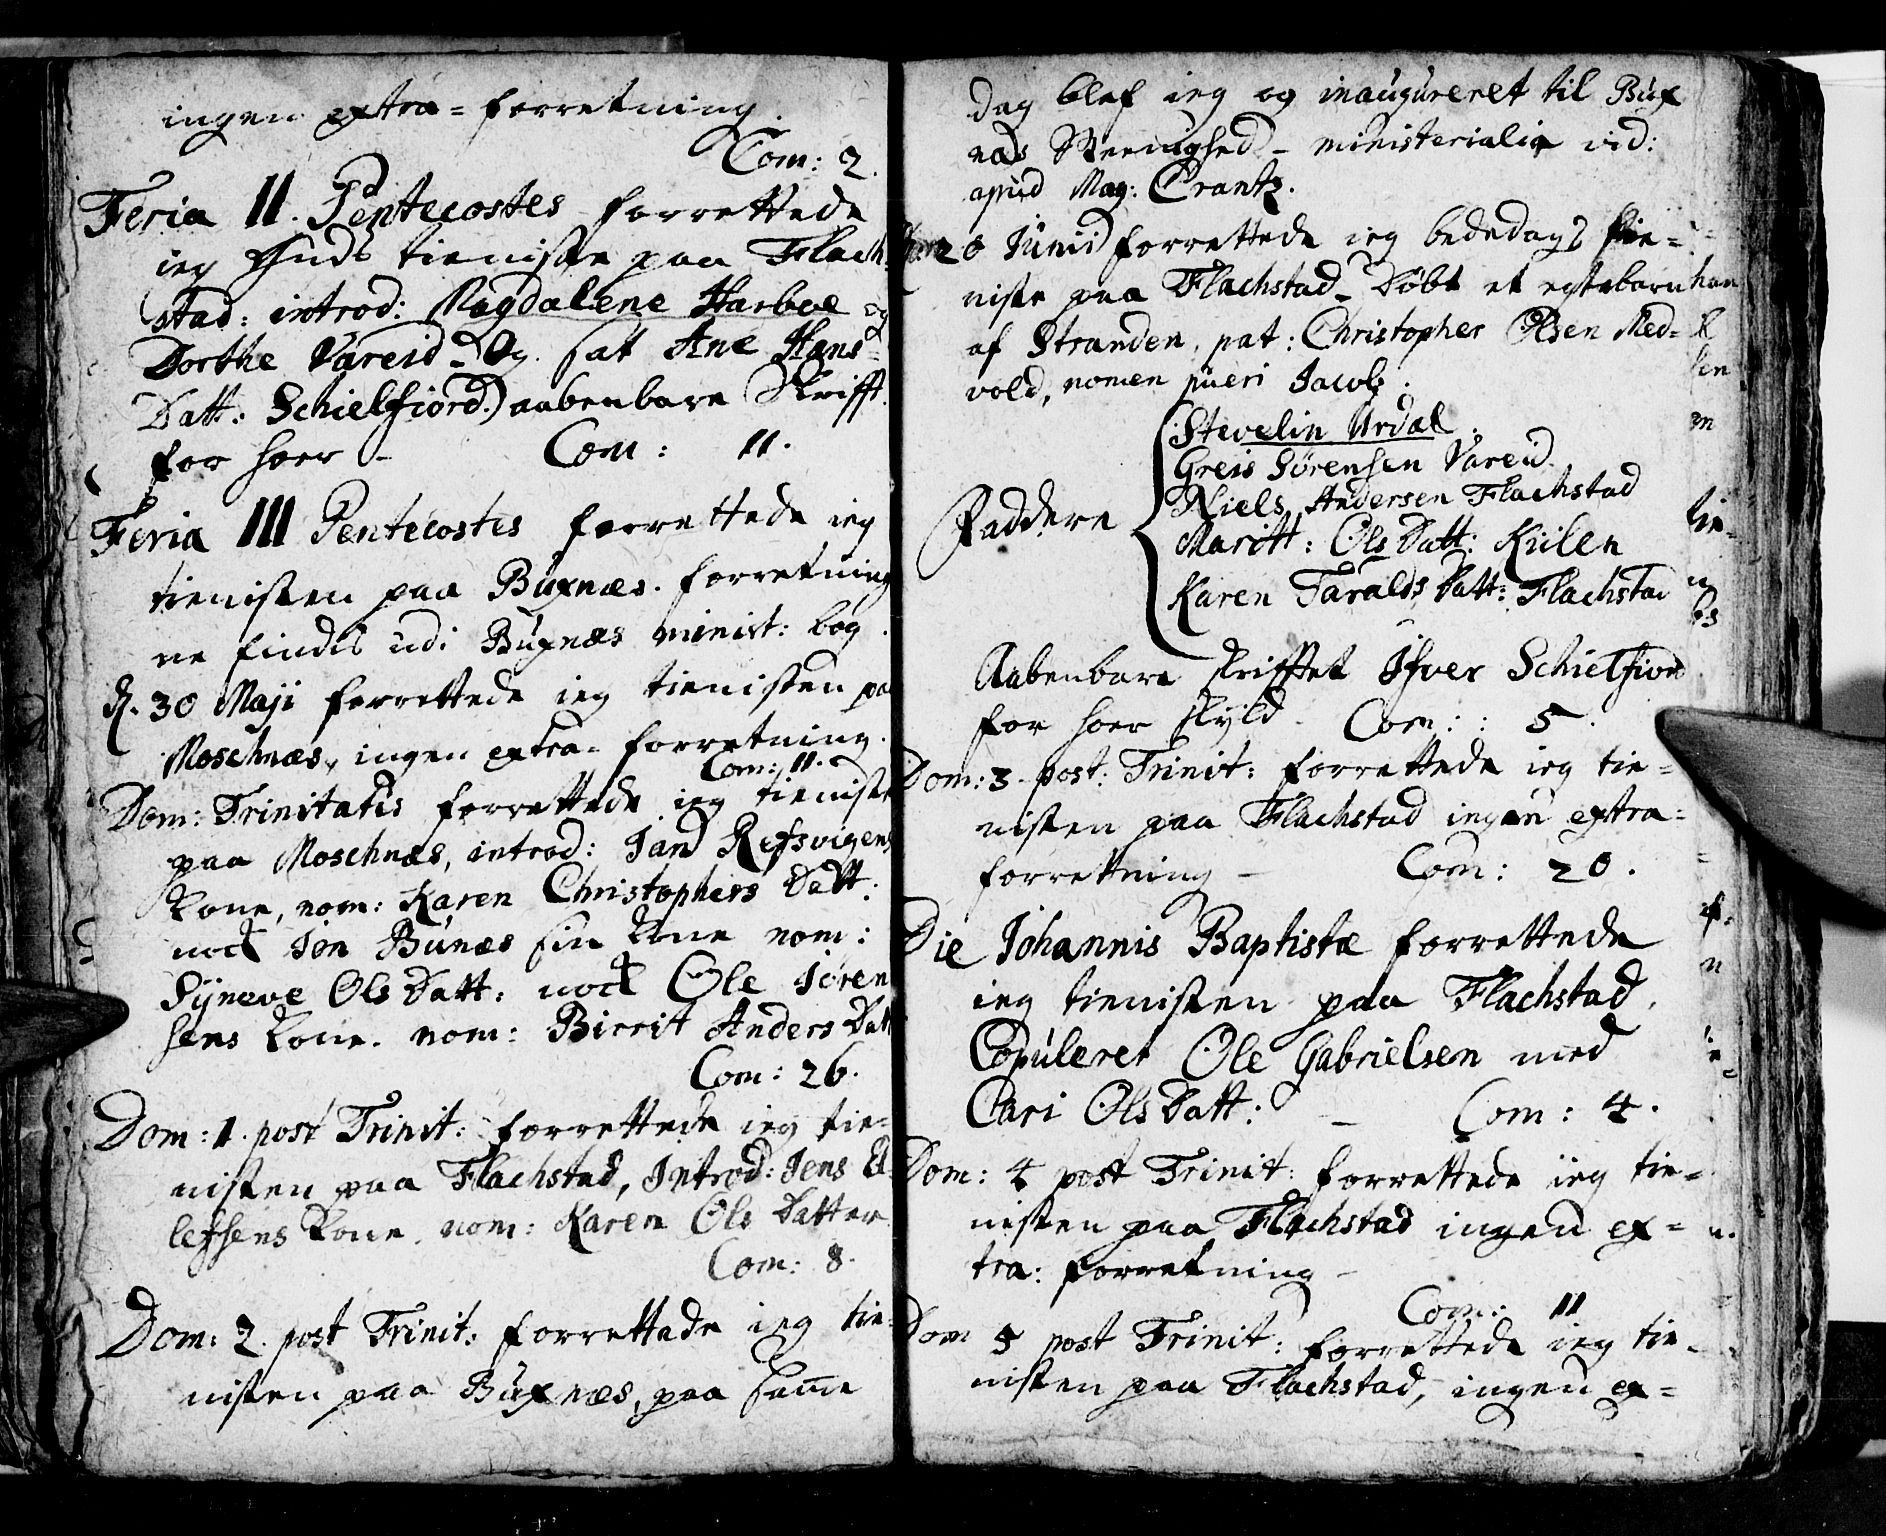 ingen extra-forretning.
Com: 2.
Feria II. Pentecostes forrettede
ieg Guds tieniste paa Flach-
stad: introd: Magdalene Harboe og
Dorthe Vareid_ Og. sat Ane Hans-
Datt: Schielfiord.) aabenbare Skrifft.
for hoer - Com: 11.
Feria III Pentecostes forrettede ieg
tienisten paa Buxnæs. forretning
ne findis udi Buxnæs minist: bog.
d. 30 Maji forrettede ieg tienisten paa
Moschnæs, ingen extra-forretning.
Com: 11.
Dom: Trinitatis forrettede ieg tieniste
paa Moschnæs, introd: Jand Refsvigens
Kone, nom: Karen Christophers Datt:
nock Jon Bunæs sin Kone nom:
Syneve Ols Datt: nock Ole Joren
sens Kone. nom: Birrit Anders Datt
Com: 26.
Dom: 1. post Trinit: forrettede ieg tie-
nisten paa Flachstad, Introd: Jens El-
lefsens Kone. nom: Karen Ols Datter
Com: 8.
Dom: 2. post Trinit: forrettede ieg tie-
nisten paa Buxnæs, paa same
dag blef ieg og inaugureret til Bux
næs Meenighed - ministerialia vid:
apud Mag: Crantz.
20 Junii forrettede ieg bededags tie-
niste paa Flachstad_ Døbt et egtebarn
af Stranden, pat: Christopher Olsen Med-
vold, nomen pueri Jacob.
Faddere
Stevelin Urdal.
Greis Sørensen Vareid.
Niels Andersen Flachstad
Maritt: Ols Datt: Kiilen
Karen Taralds Datt: Flachstad
Aabenbare skrifftet Ifver Schielfiord
for hoer skyld - Com: : 5.
Dom: 3. post: Trinit: forrettede ieg tie-
nisten paa Flachstad ingen extra-
forretning - Com: 20.
Die Johannis Baptistæ forrettede
ieg tienisten paa Flachstad.
Copuleret Ole Gabrielsen med
Cari Ols Datt: - Com: 4.
Dom: 4 post Trinit: forrettede ieg tie-
nisten paa Flachstad ingen ex-
tra: forretning -
Com: 11
Dom 5 post Trinit: forrettede ieg tie-
nisten paa Flachstad, ingen ex-